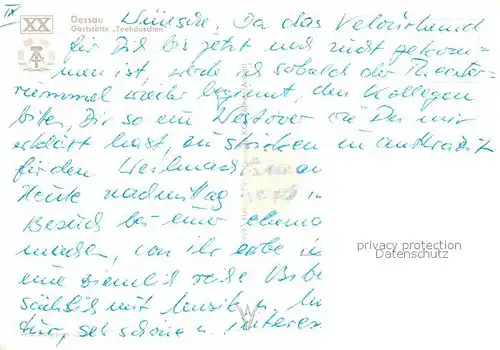 IX
XX
Dessau
Gaststätte „Teehäuschen"
Wünsche. Da das Velourhemd
für Dich bis jetzt noch nicht gekom-
men ist, werde ich sobald der Theater-
rummel wieder beginnt, den Kollegen
bitten, Dir so ein Westover wie Du mir
erklärt hast, zu stricken in anthrazit
für den Weihnachts
Heute nachmittag
Besuch bei einer ehema
, von ihr erbe ich
eine ziemlich reiche Bibe
sächlich mit Musik u.
tur, seh schöne u. interes
privacy protection
Datenschutz